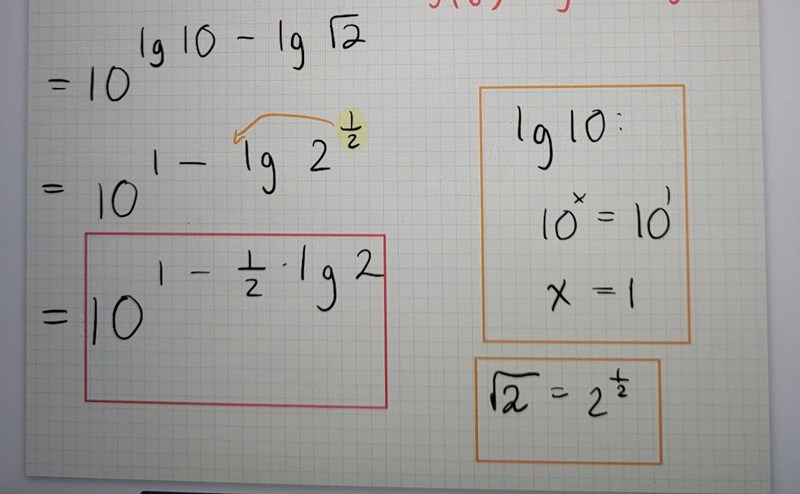 = 10^(lg 10 - lg √2)
= 10^(1 - lg 2^(1/2))
= 10^(1 - 1/2 · lg 2)
lg 10:
10^x = 10^1
x = 1
√2 = 2^(1/2)